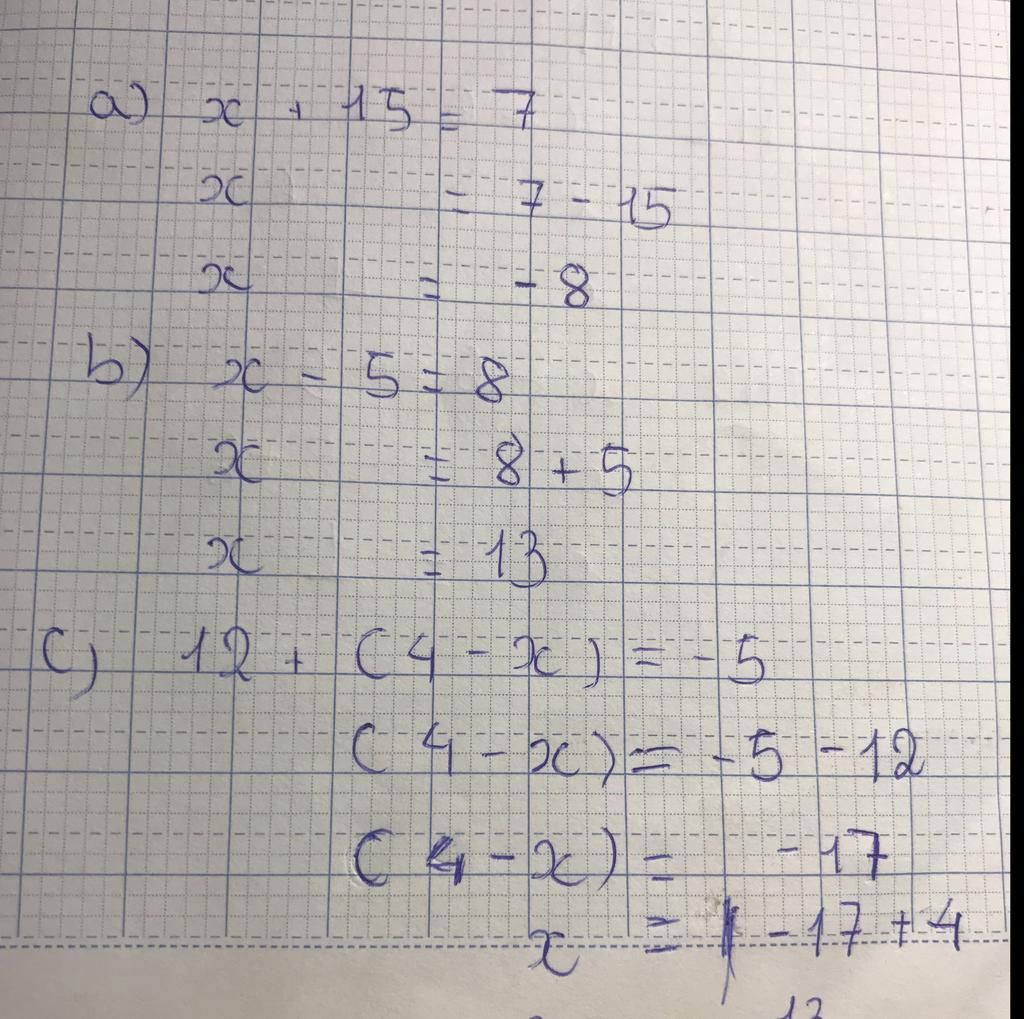 a) x + 15 = 7
x = 7 - 15
x = - 8
b) x - 5 = 8
x = 8 + 5
x = 13
c) 12 + (4 - x) = - 5
(4 - x) = - 5 - 12
(4 - x) = - 17
x = - 17 + 4